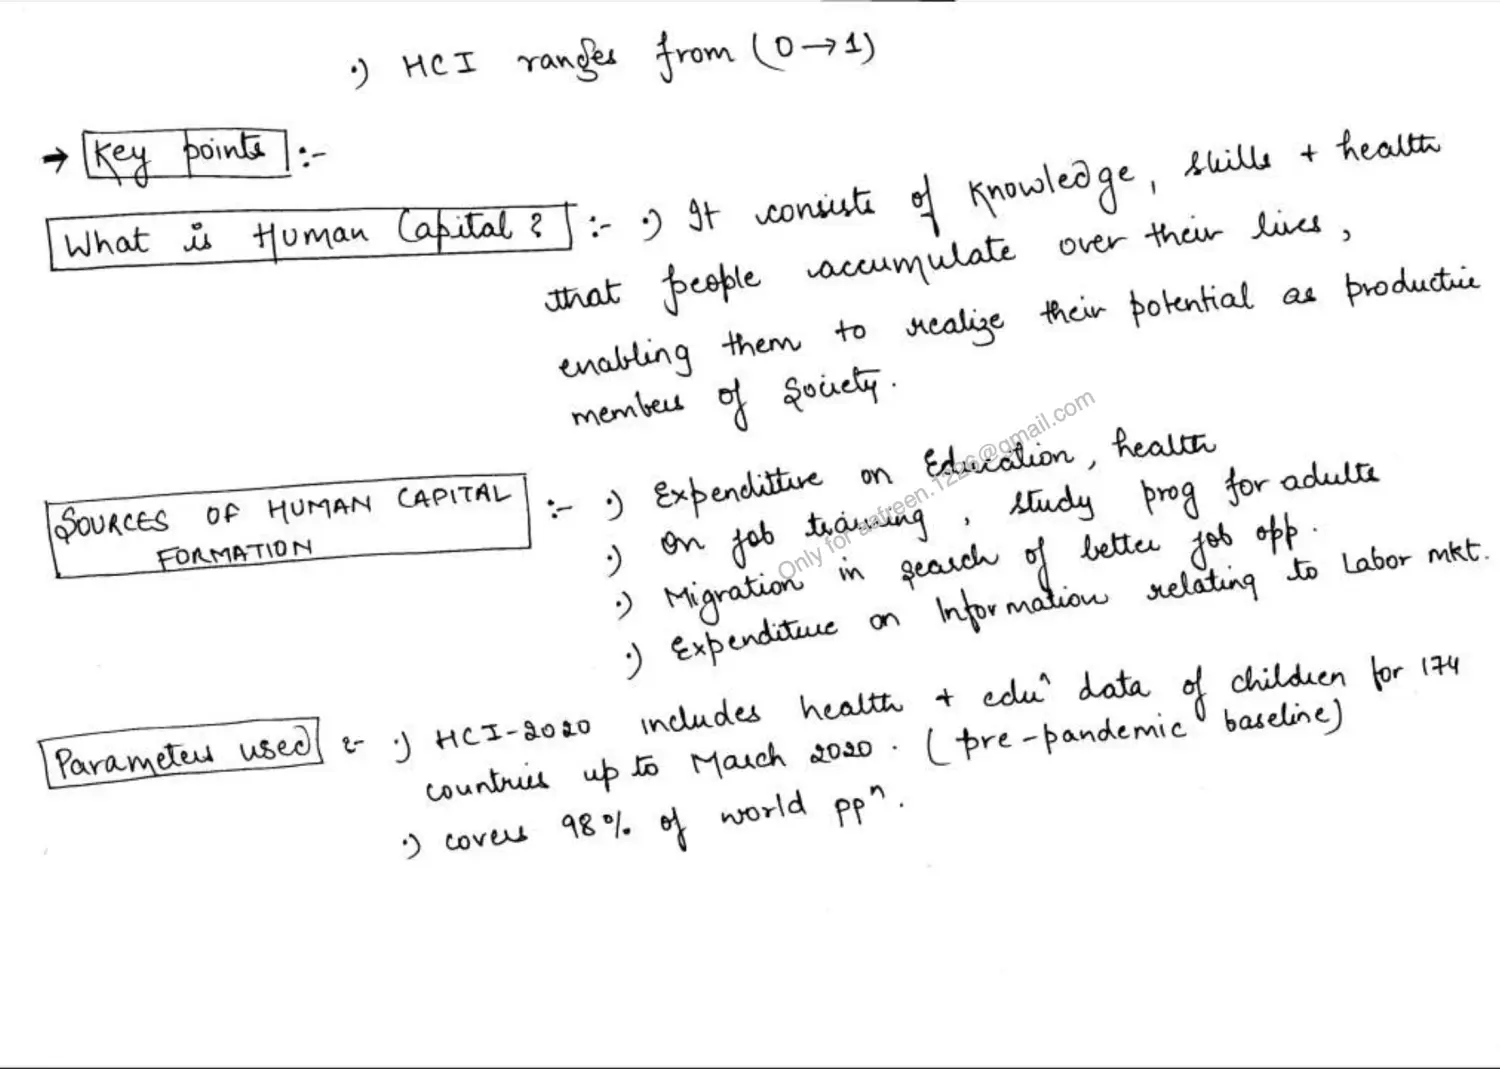 ·) HCI ranges from (0→1)
→ Key points :-
What is Human Capital? :- ·) It consists of knowledge, skills + health
that people accumulate over their lives,
enabling them to realize their potential as productive
members of society.
SOURCES OF HUMAN CAPITAL
FORMATION :- ·) Expenditure on Education, health
·) On job training, study prog for adults
·) Migration in search of better job opp.
·) Expenditure on Information relating to Labor mkt.
Parameters used :- ·) HCI-2020 includes health + eduⁿ data of children for 174
countries up to March 2020. (pre-pandemic baseline)
·) covers 98% of world ppⁿ.
Only for aafreen.1226@gmail.com